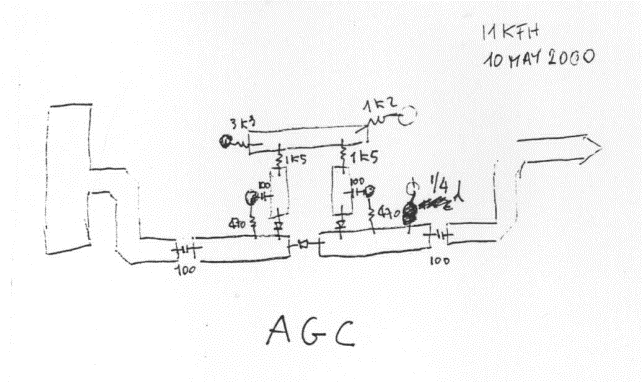 I1KFH
10 MAY 2000
1K2
3K3
1K5
1K5
100
100
1/4 λ
470
470
100
100
AGC